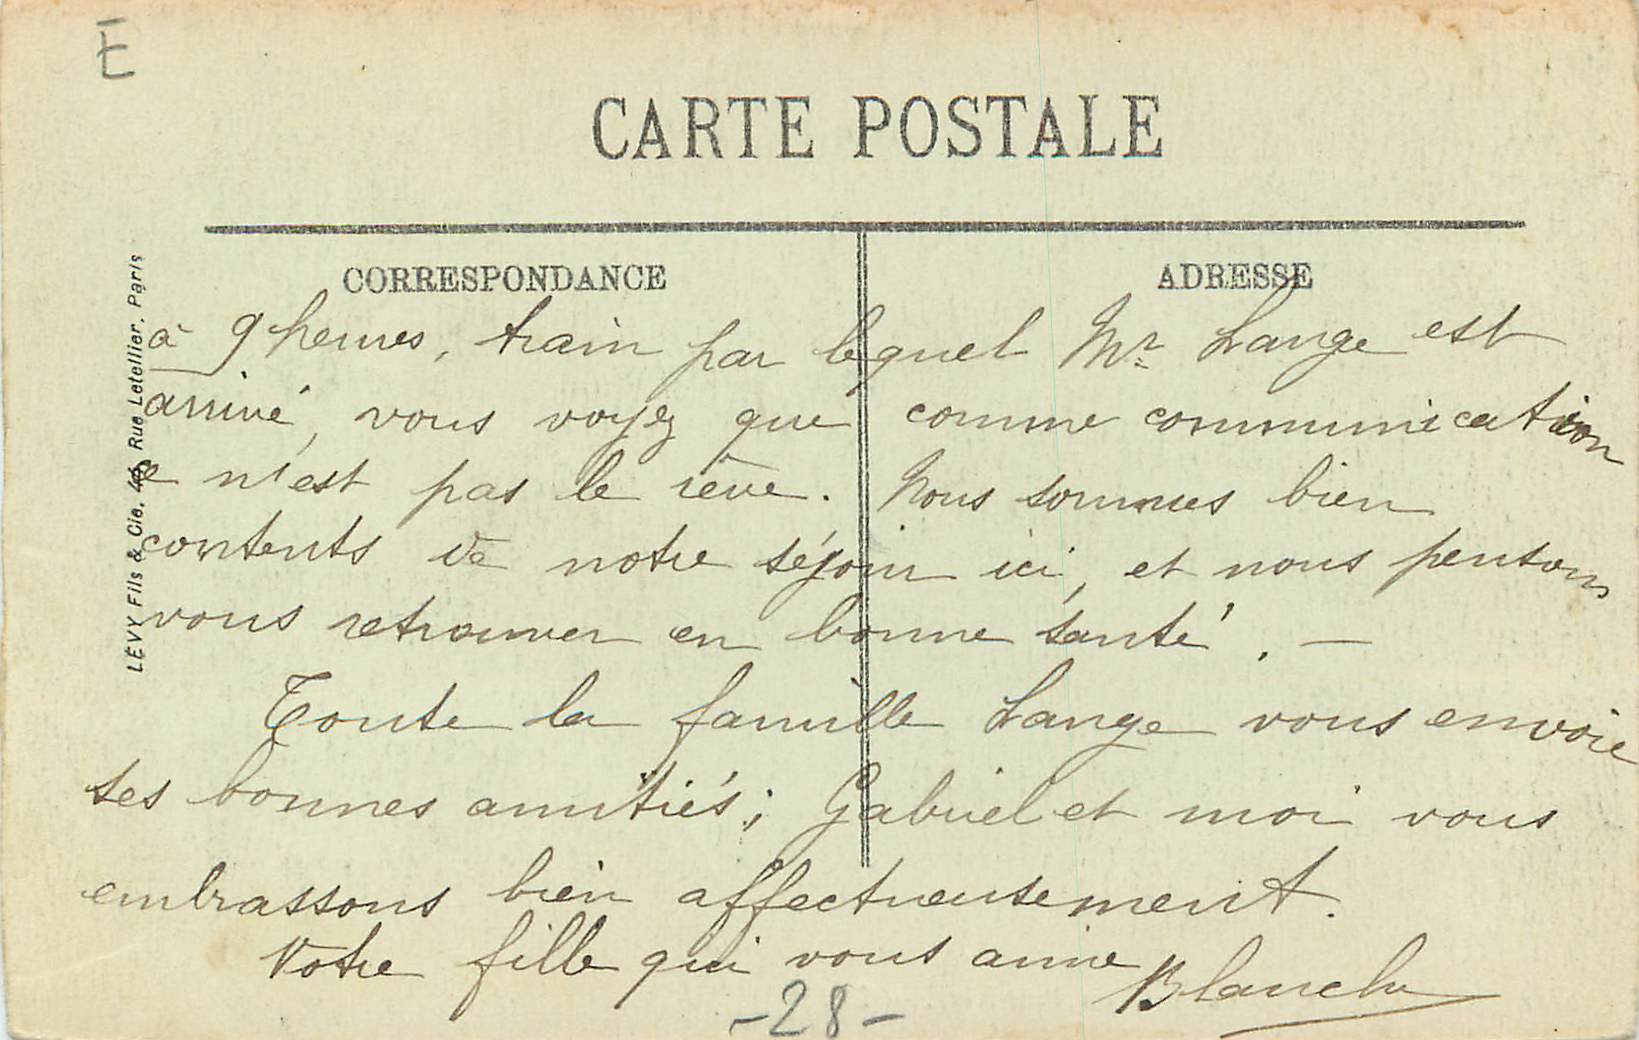 E
CARTE POSTALE
CORRESPONDANCE
ADRESSE
LÉVY Fils & Cie, 44, Rue Letellier, Paris
à 9 heures, train par lequel Mr Lange est
arrivé, vous voyez que comme communication
ce n'est pas le rêve. Nous sommes bien
contents de notre séjour ici, et nous pensons
vous retrouver en bonne santé. —
Toute la famille Lange vous envoie
ses bonnes amitiés; Gabriel et moi vous
embrassons bien affectueusement.
Votre fille qui vous aime
Blanche
-28-